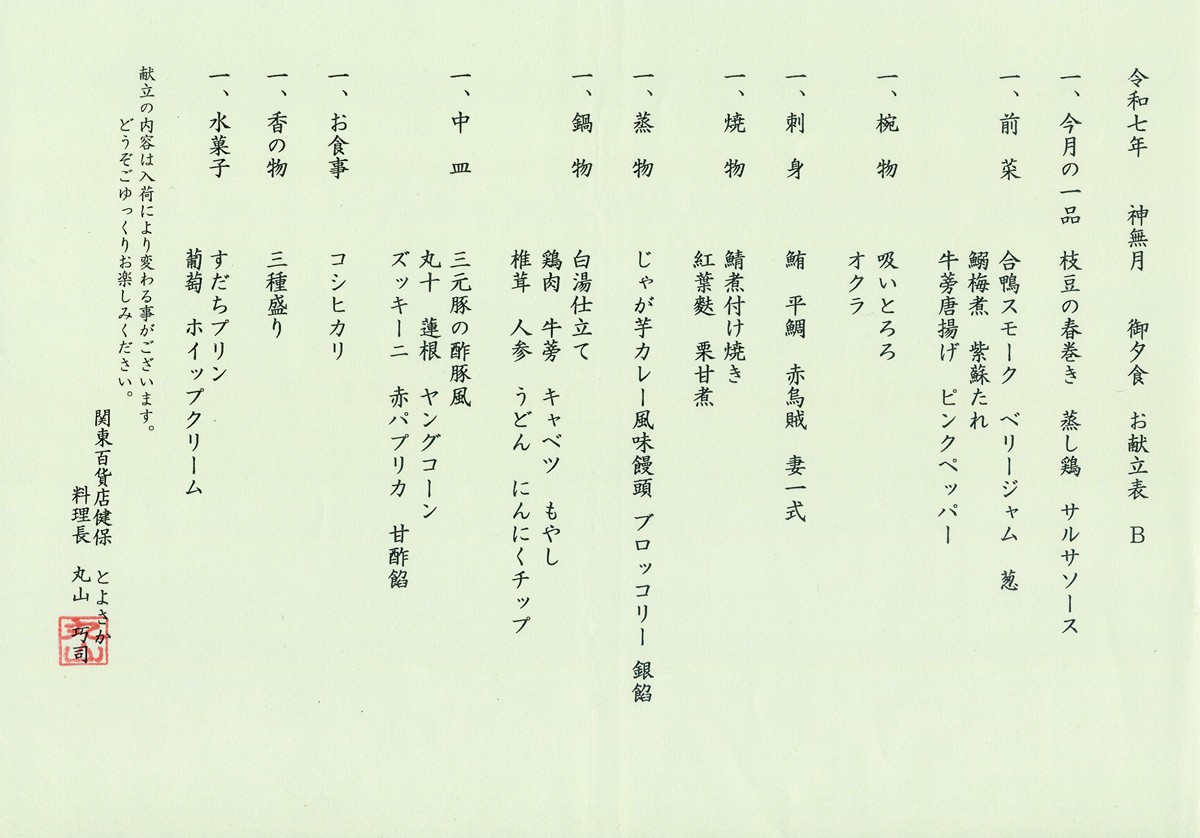 令和七年　神無月　御夕食　お献立表　B
一、今月の一品　枝豆の春巻き　蒸し鶏　サルサソース
一、前菜　合鴨スモーク　ベリージャム　葱
鰯梅煮　紫蘇たれ
牛蒡唐揚げ　ピンクペッパー
一、椀物　吸いとろろ
オクラ
一、刺身　鮪　平鯛　赤烏賊　妻一式
一、焼物　鯖煮付け焼き
紅葉麩　栗甘煮
一、蒸物　じゃが芋カレー風味饅頭　ブロッコリー　銀餡
一、鍋物　白湯仕立て
鶏肉　牛蒡　キャベツ　もやし
椎茸　人参　うどん　にんにくチップ
一、中皿　三元豚の酢豚風
丸十　蓮根　ヤングコーン
ズッキーニ　赤パプリカ　甘酢餡
一、お食事　コシヒカリ
一、香の物　三種盛り
一、水菓子　すだちプリン
葡萄　ホイップクリーム
献立の内容は入荷により変わる事がございます。
どうぞごゆっくりお楽しみください。
関東百貨店健保　とよさか
料理長　丸山　巧司
丸山